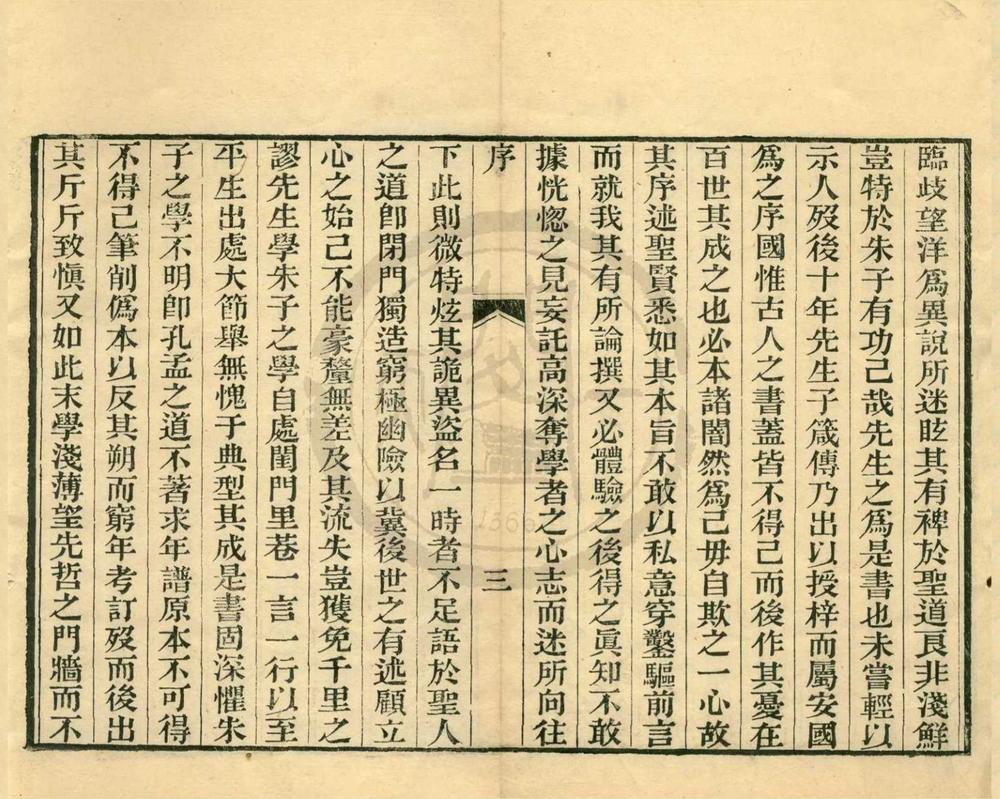 臨歧望洋爲異說所迷眩其有裨於聖道良非淺鮮
豈特於朱子有功已哉先生之爲是書也未嘗輕以
示人歿後十年先生子箴傳乃出以授梓而屬安國
爲之序國惟古人之書蓋皆不得已而後作其憂在
百世其成之也必本諸闇然爲己毋自欺之一心故
其序述聖賢悉如其本旨不敢以私意穿鑿驅前言
而就我其有所論撰又必體驗之後得之眞知不敢
據恍惚之見妄託高深奪學者之心志而迷所向往
序 三
下此則微特炫其詭異盜名一時者不足語於聖人
之道卽閉門獨造窮極幽險以冀後世之有述顧立
心之始已不能豪釐無差及其流失豈獲免千里之
謬先生學朱子之學自處閨門里巷一言一行以至
平生出處大節舉無愧于典型其成是書固深懼朱
子之學不明卽孔孟之道不著求年譜原本不可得
不得已筆削僞本以反其朔而窮年考訂歿而後出
其斤斤致愼又如此末學淺薄望先哲之門牆而不